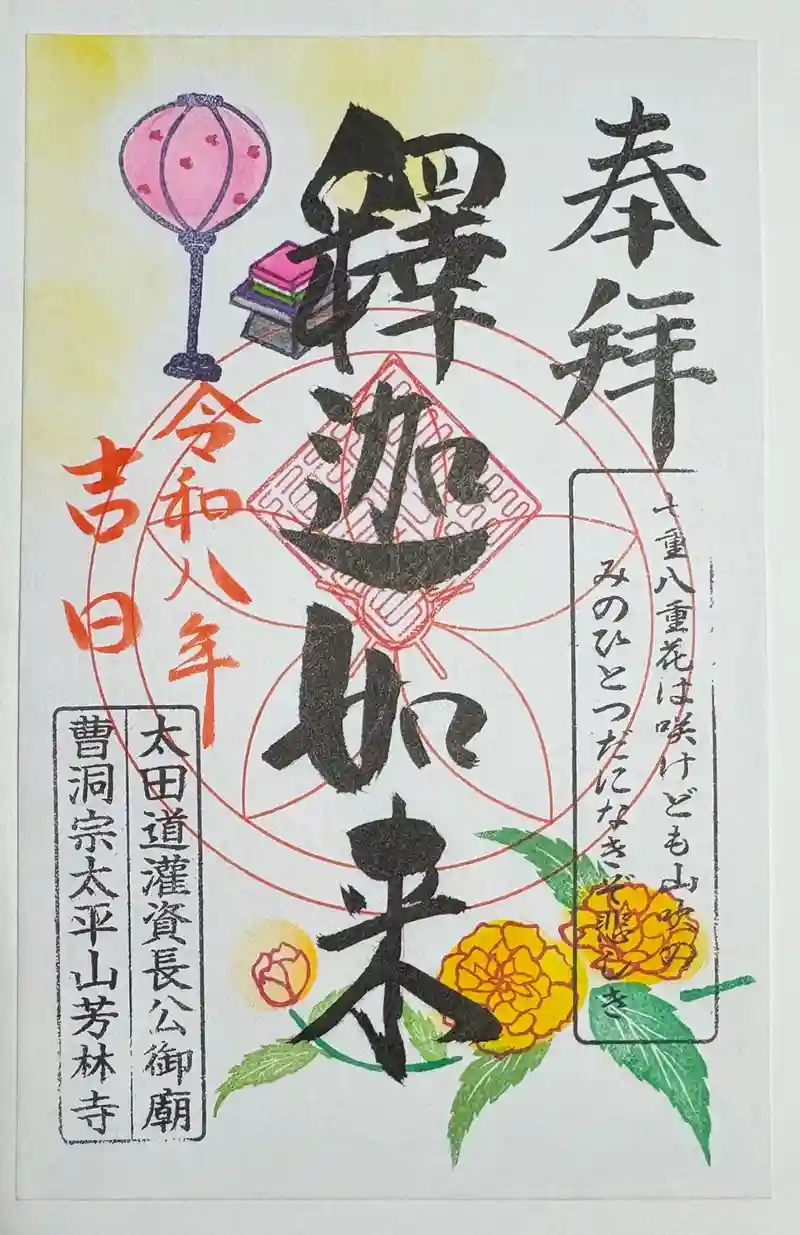 奉拝
七重八重花は咲けども山吹の
みのひとつだになきぞ悲しき
釋迦如来
令和八年
吉日
太田道灌資長公御廟
曹洞宗太平山芳林寺